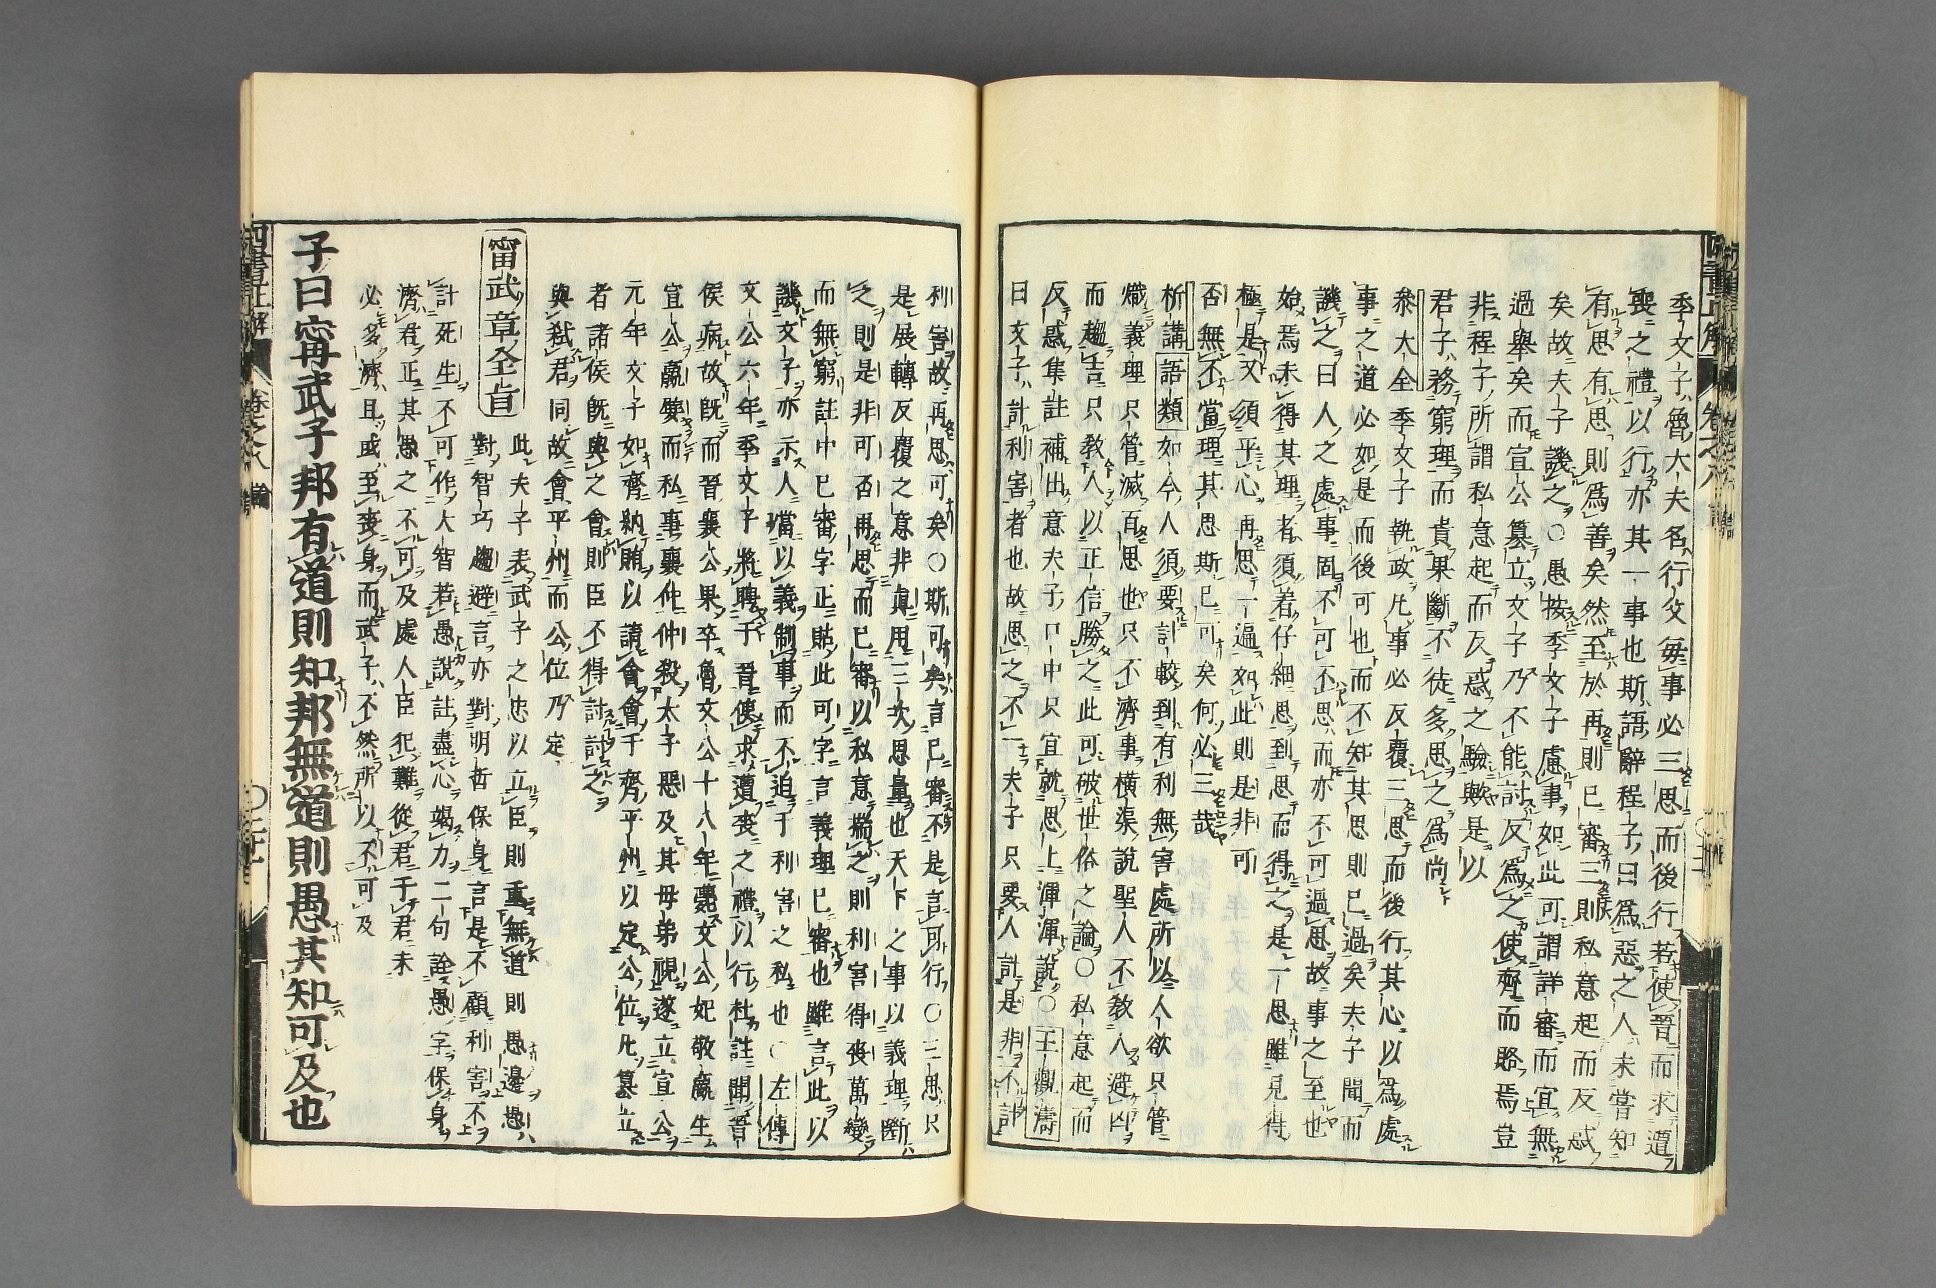 季文子魯大夫名行父毎事必三思而後行若使晉而求遭
喪之禮以行亦其一事也斯語辭程子曰爲惡之人未嘗知
有思有思則爲善矣然至於再則已審三則私意起而反惑
矣故夫子譏之〇愚按季文子慮事如此可謂詳審而宜無
過舉矣而宣公簒立文子乃不能討反爲之使齊而賂焉豈
非程子所謂私意起而反惑之驗歟是以
君子務窮理而貴果斷不徒多思之爲尚
叅大全季文子執政凡事必反覆三思而後行其心以爲處
事之道必如是而後可也而不知其思則已過矣夫子聞而
譏之曰人之處事固不可不思而亦不可過思故事之至也
始焉未得其理者須着仔細思到思而得之是一思雖見得
極是又須平心再思一遍如此則是非可
否無不當理其思斯已可矣何必三哉
析講 語類 如今人須要計較到有利無害處所以人欲只管
熾義理只管滅百思也只不濟事横渠說聖人不教人避凶
而趨吉只教人以正信勝之此可破世俗之論〇私意起而
反惑集註補出意夫子口中只宜就思上渾渾說〇王觀濤
曰文子計利害者也故思之不一夫子只要人計是非不計
利害故再思可矣〇斯可矣言已審不是言可行〇三思只
是展轉反覆之意非眞用三次思量也天下之事以義理斷
之則是非可否再思而已審以私意揣之則利害得喪萬變
而無窮註中已審字正貼此可字言義理已審也雖言此以
譏文子亦示人當以義制事而不迫于利害之私也〇左傳
文公六年季文子將聘于晉使求遭喪之禮以行杜註聞晉
侯病故既而晉襄公果卒魯文公十八年薨文公妃敬嬴生
宣公嬴嬖而私事襄仲仲殺太子惡及其母弟視遂立宣公
元年文子如齊納賂以請會會于齊平州以定公位凡簒立
者諸侯既與之會則臣不得討討之
與弑君同故會平州而公位乃定
甯武章全旨 此夫子表武子之忠以立臣則重無道則愚邊愚
對智巧趨避言亦對明哲保身言是不顧利害不
計死生不可作大智若愚說註盡心竭力二句詮愚字保身
濟君正其愚之不可及處人臣犯難從君于君未
必多濟且或至喪身而武子不然所以不可及
子曰甯武子邦有道則知邦無道則愚其知可及也
四書正解 卷之八 論